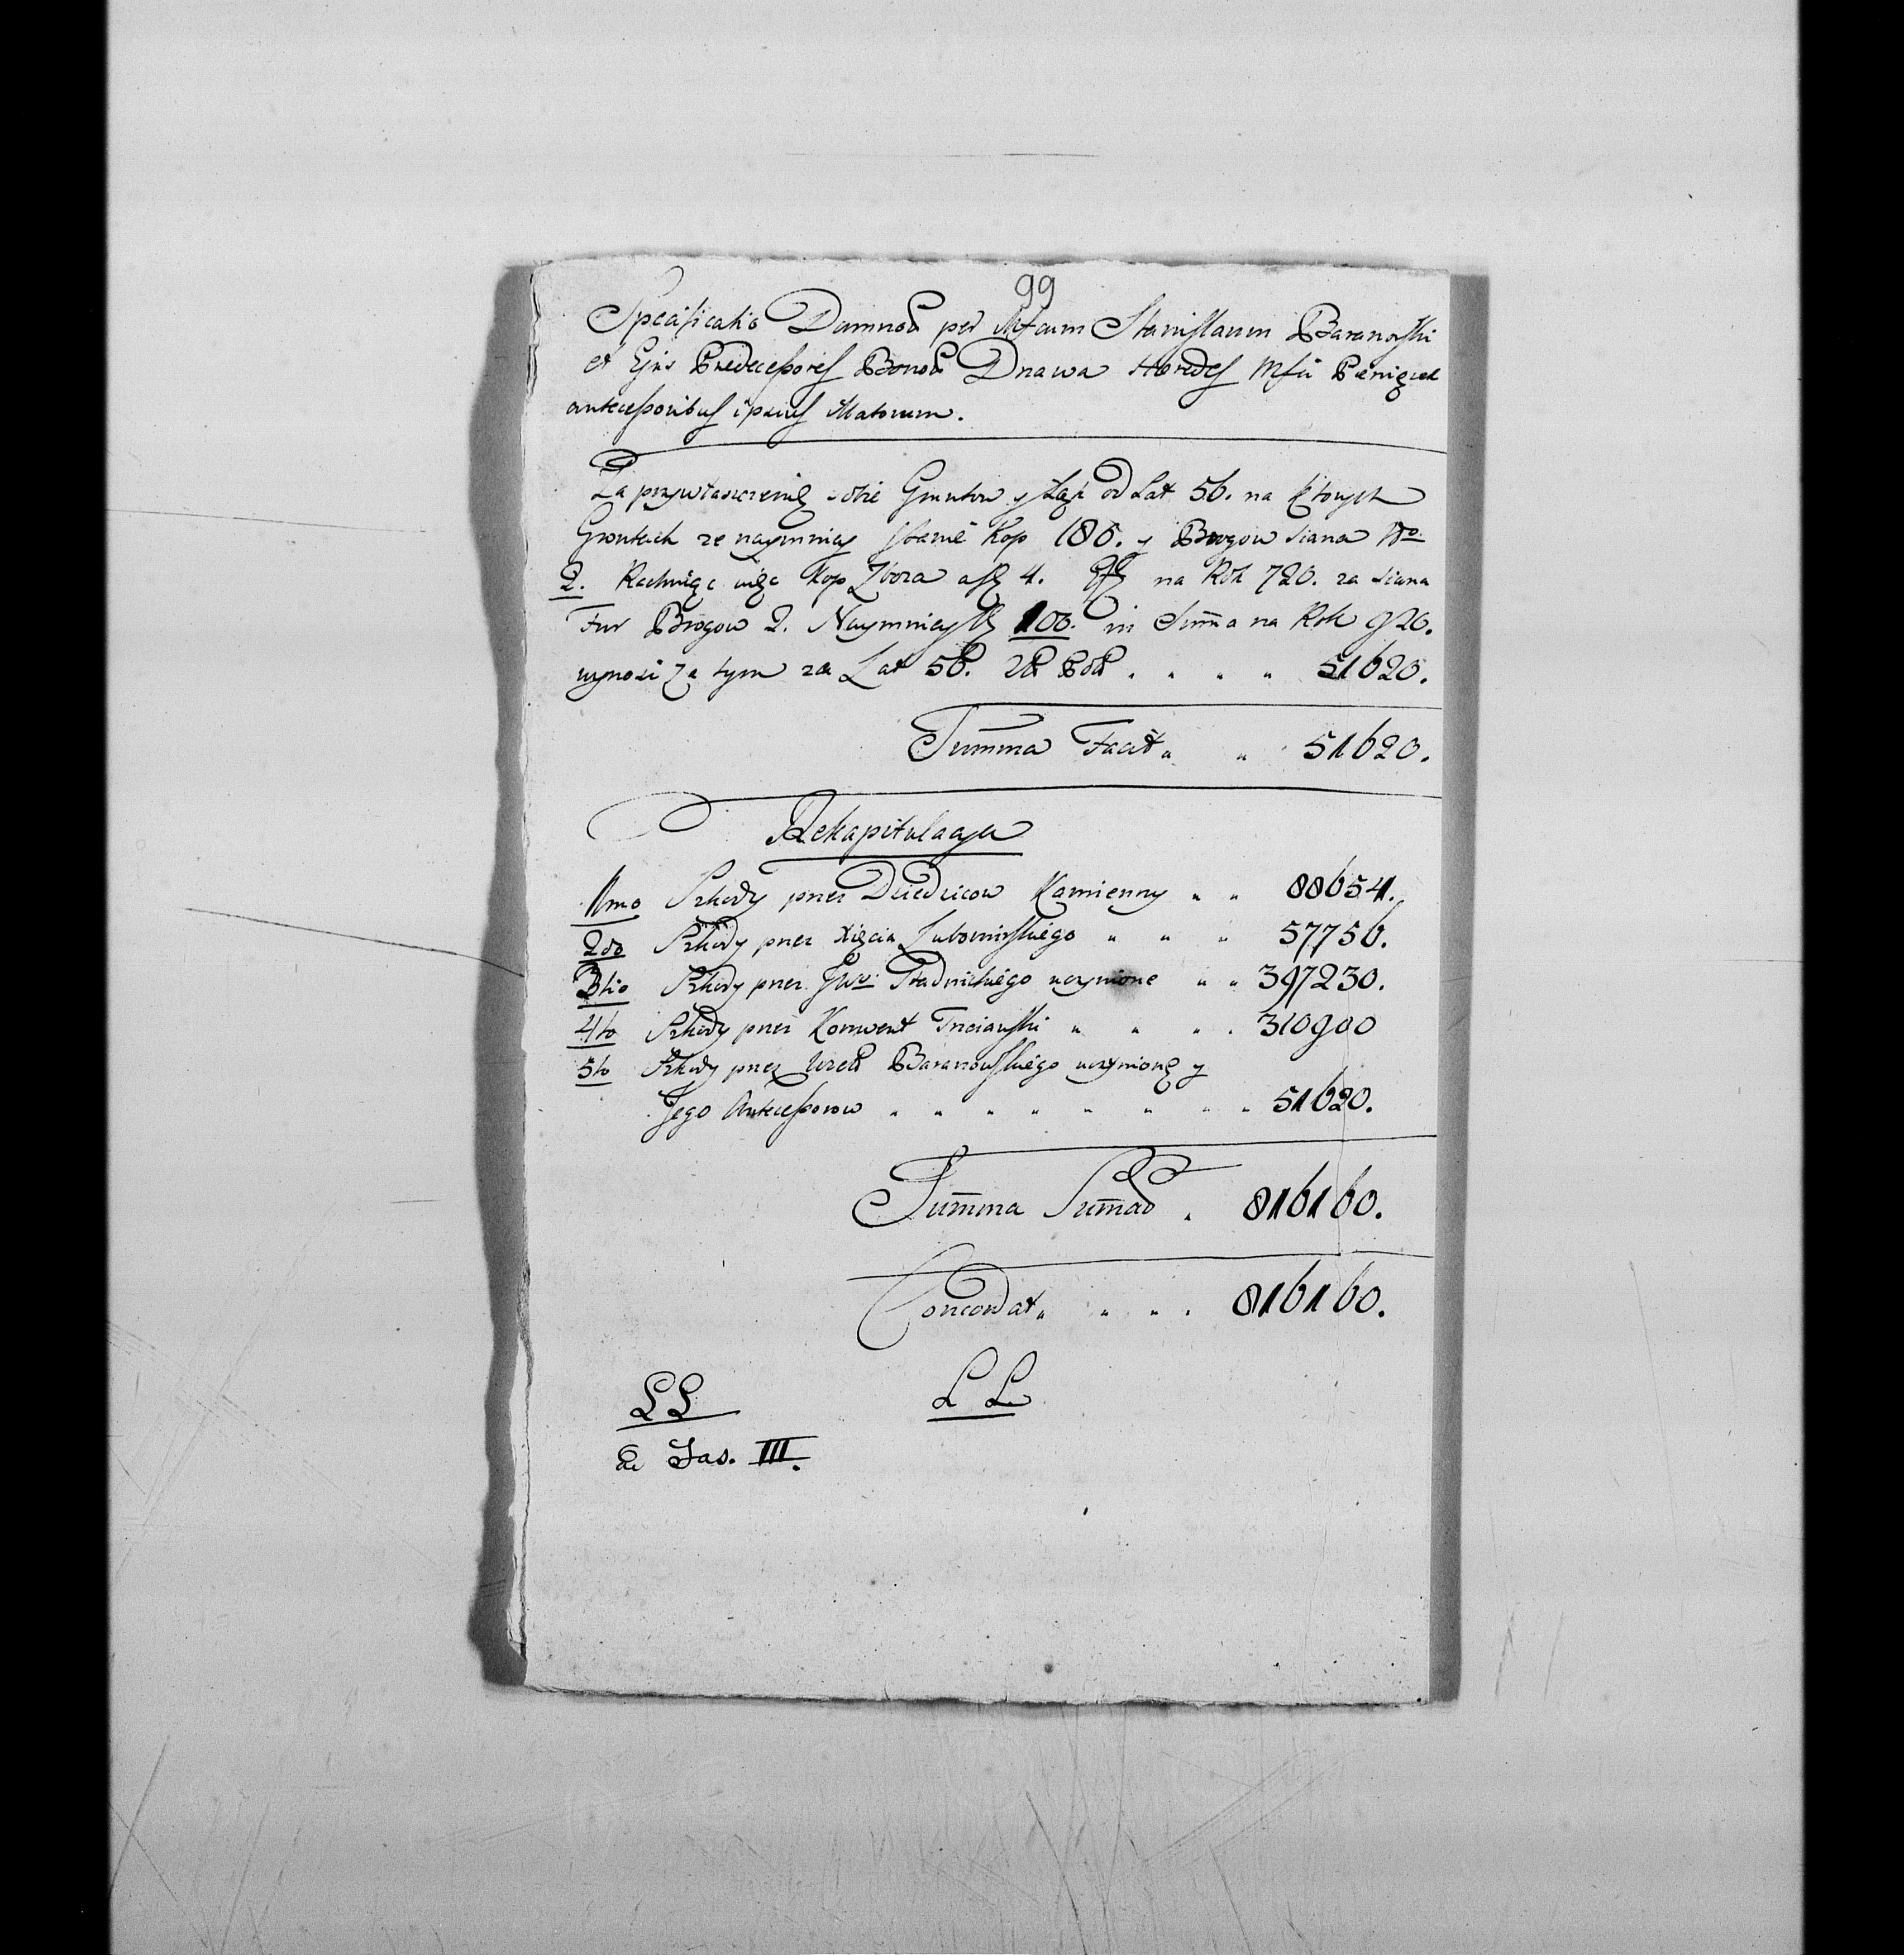 99
Specificatio Damnor per Mfcum Stanislaum Baranowski
et Ejus Predecessores Bonor Dnawa Hæredes Mfci Pieniązek
antecessoribus ipsius illatorum.
Za przywłaszczenie sobie Gruntow y Łąk od Lat 56. na ktorych
Gruntach ze naymniey stanie kop 180. y Brogow siana Nro
2. Rachuięc więc kop Zboza a 4. na Rok 720. za siana
Fur Brogow 2. Naymniey 100. in Summa na Rok 920.
wynosi Za tym za Lat 56. 51620.
Summa Facit 51620.
Rekapitulacya
1mo Szkody przez Dziedzicow Kamienny 88654.
2do Szkody przez Xięcia Lubomirskiego 57756.
3tio Szkody przez JWo Stadnickiego uczynione 307230.
4to Szkody przez Konwent Trzcianski 310900
5to Szkody przez Baranowskiego uczynione y
Jego Antecessorow 51620.
Summa Summar 816160.
Concordat 816160.
LL LL
Fas. III.